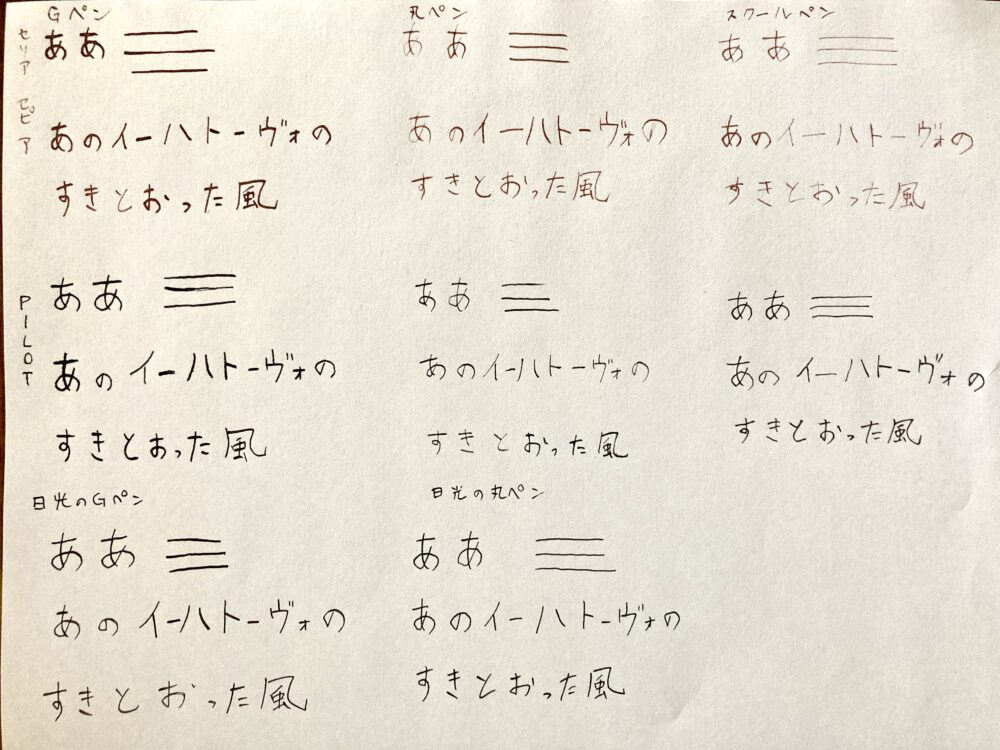 Gペン 丸ペン スクールペン
セリア セピア
ああ ああ ああ
あのイーハトーヴォの あのイーハトーヴォの あのイーハトーヴォの
すきとおった風 すきとおった風 すきとおった風
PILOT
ああ ああ ああ
あのイーハトーヴォの あのイーハトーヴォの あのイーハトーヴォの
すきとおった風 すきとおった風 すきとおった風
日光のGペン 日光の丸ペン
ああ ああ
あのイーハトーヴォの あのイーハトーヴォの
すきとおった風 すきとおった風